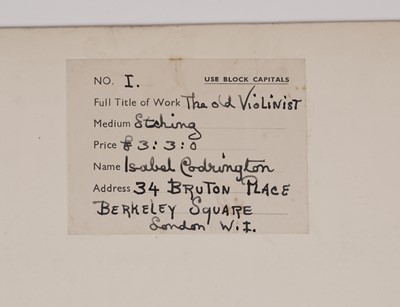 NO. I. USE BLOCK CAPITALS
Full Title of Work The old VIOLINIST
Medium Etching
Price £3:3:0
Name Isabel Codrington
Address 34 BRUTON PLACE
BERKELEY SQUARE
London W.I.